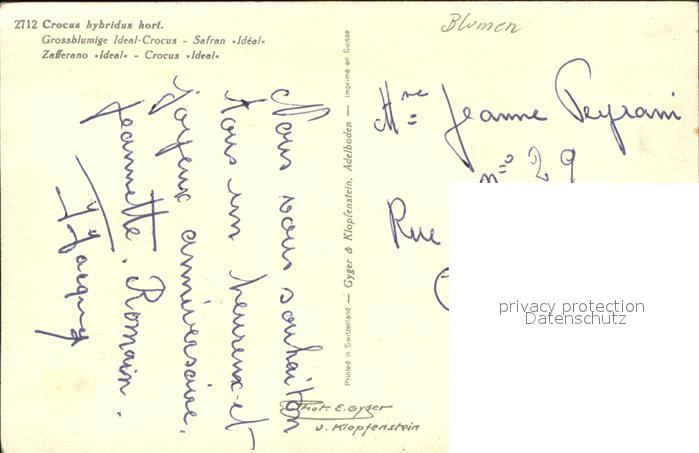 2712 Crocus hybridus hort.
Grossblumige Ideal-Crocus - Safran »Idéal«
Zafferano »Ideal« - Crocus »Ideal«
Blumen
Nous vous souhaiton
tous un heureux et
joyeux anniversaire.
Jeannette. Romain.
Jacquy
Printed in Switzerland — Gyger & Klopfenstein, Adelboden — Imprimé en Suisse
Mme Jeanne Peyrani
n° 29
Rue
privacy protection
Datenschutz
Phot. E. Gyger
u. Klopfenstein